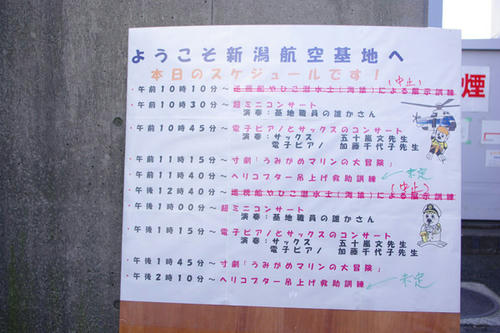 ようこそ新潟航空基地へ
本日のスケジュールです!
(中止)
・午前10時10分～巡視船やひこ潜水士(海猿)による展示訓練
・午前10時30分～超ミニコンサート
演奏:基地職員の誰かさん
・午前10時45分～電子ピアノとサックスのコンサート
演奏:サックス 五十嵐文先生
電子ピアノ 加藤千代子先生
・午前11時15分～寸劇「うみがめマリンの大冒険」
・午前11時40分～ヘリコプター吊上げ救助訓練 未定
(中止)
・午後12時40分～巡視船やひこ潜水士(海猿)による展示訓練
・午後1時00分～超ミニコンサート
演奏:基地職員の誰かさん
・午後1時15分～電子ピアノとサックスのコンサート
演奏:サックス 五十嵐文先生
電子ピアノ 加藤千代子先生
・午後1時45分～寸劇「うみがめマリンの大冒険」
・午後2時10分～ヘリコプター吊上げ救助訓練 未定
煙